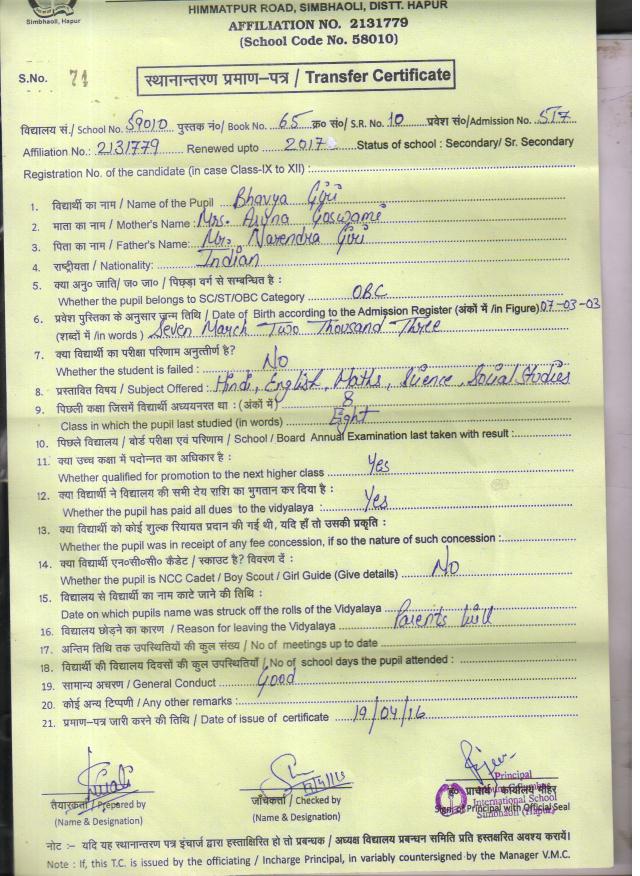 Simbhaoli, Hapur
HIMMATPUR ROAD, SIMBHAOLI, DISTT. HAPUR
AFFILIATION NO. 2131779
(School Code No. 58010)
S.No. 71
स्थानान्तरण प्रमाण–पत्र / Transfer Certificate
विद्यालय सं./ School No. 59010 पुस्तक नं०/ Book No. 65 क्र० सं०/ S.R. No. 10 प्रवेश सं०/Admission No. 517
Affiliation No.: 2131779 Renewed upto 2017 Status of school : Secondary/ Sr. Secondary
Registration No. of the candidate (in case Class-IX to XII) :
1. विद्यार्थी का नाम / Name of the Pupil Bhavya Giri
2. माता का नाम / Mother's Name : Mrs. Goswami
3. पिता का नाम / Father's Name: Mr. Narendra Giri
4. राष्ट्रीयता / Nationality: Indian
5. क्या अनु० जाति/ ज० जा० / पिछड़ा वर्ग से सम्बन्धित है :
Whether the pupil belongs to SC/ST/OBC Category OBC
6. प्रवेश पुस्तिका के अनुसार जन्म तिथि / Date of Birth according to the Admission Register (अंकों में /in Figure) 07-03-03
(शब्दों में /in words ) Seven March Two Thousand Three
7. क्या विद्यार्थी का परीक्षा परिणाम अनुत्तीर्ण है?
Whether the student is failed : No
8. प्रस्तावित विषय / Subject Offered : Hindi, English, Maths, Science, Social Studies
9. पिछली कक्षा जिसमें विद्यार्थी अध्ययनरत था : (अंकों में) 8
Class in which the pupil last studied (in words) Eight
10. पिछले विद्यालय / बोर्ड परीक्षा एवं परिणाम / School / Board Annual Examination last taken with result :
11. क्या उच्च कक्षा में पदोन्नत का अधिकार है :
Whether qualified for promotion to the next higher class Yes
12. क्या विद्यार्थी ने विद्यालय की सभी देय राशि का भुगतान कर दिया है :
Whether the pupil has paid all dues to the vidyalaya : Yes
13. क्या विद्यार्थी को कोई शुल्क रियायत प्रदान की गई थी, यदि हाँ तो उसकी प्रकृति :
Whether the pupil was in receipt of any fee concession, if so the nature of such concession :
14. क्या विद्यार्थी एन०सी०सी० कैडेट / स्काउट है? विवरण दें :
Whether the pupil is NCC Cadet / Boy Scout / Girl Guide (Give details) No
15. विद्यालय से विद्यार्थी का नाम काटे जाने की तिथि :
Date on which pupils name was struck off the rolls of the Vidyalaya
16. विद्यालय छोड़ने का कारण / Reason for leaving the Vidyalaya Parents Will
17. अन्तिम तिथि तक उपस्थितियों की कुल संख्या / No of meetings up to date
18. विद्यार्थी की विद्यालय दिवसों की कुल उपस्थितियाँ / No of school days the pupil attended :
19. सामान्य अचरण / General Conduct Good
20. कोई अन्य टिप्पणी / Any other remarks :
21. प्रमाण–पत्र जारी करने की तिथि / Date of issue of certificate 19/04/16
तैयारकर्ता / Prepared by
(Name & Designation)
जाँचकर्ता / Checked by
(Name & Designation)
Principal
International School
Simbhaoli (Hapur)
Sign of Principal with Official Seal
नोट :– यदि यह स्थानान्तरण पत्र इंचार्ज द्वारा हस्ताक्षरित हो तो प्रबन्धक / अध्यक्ष विद्यालय प्रबन्धन समिति प्रति हस्तक्षरित अवश्य करायें।
Note : If, this T.C. is issued by the officiating / Incharge Principal, in variably countersigned by the Manager V.M.C.